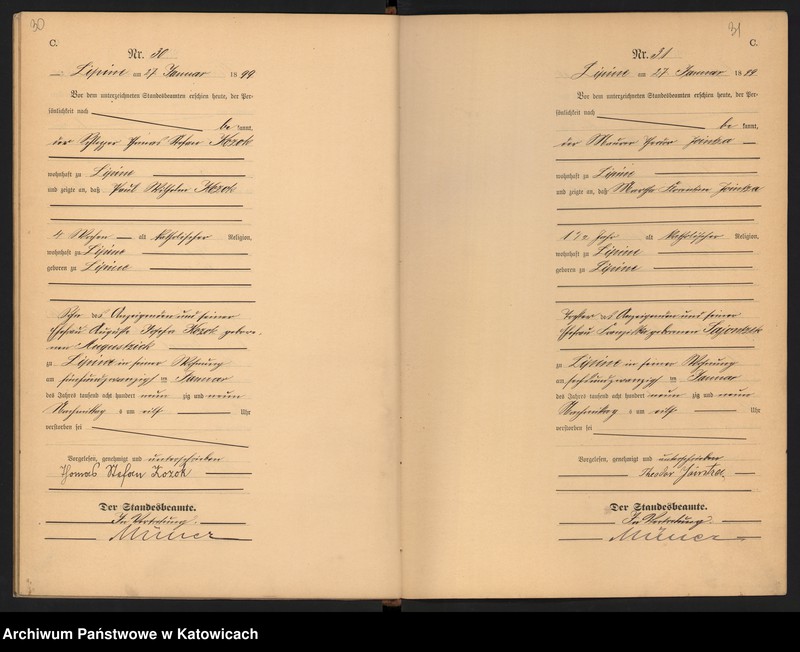 30
C.
Nr. 30
Lipine am 27 Januar 1899
Vor dem unterzeichneten Standesbeamten erschien heute, der Per-
sönlichkeit nach
be kannt,
der Thomas Stefan Kozok
wohnhaft zu Lipine
und zeigte an, daß Paul Wilhelm Kozok
4 Wochen alt katholischer Religion,
wohnhaft zu Lipine
geboren zu Lipine
Sohn des Anzeigenden und seiner
Ehefrau Auguste Josefa Kozok gebore-
nen
zu Lipine in seiner Wohnung
am fünfundzwanzigsten Januar
des Jahres tausend acht hundert neun zig und neun
Nachmittag s um elf Uhr
verstorben sei
Vorgelesen, genehmigt und unterschrieben
Thomas Stefan Kozok
Der Standesbeamte.
In Vertretung
Müller
31
C.
Nr. 31
Lipine am 27 Januar 1899
Vor dem unterzeichneten Standesbeamten erschien heute, der Per-
sönlichkeit nach
be kannt,
der Maurer Theodor Jointza
wohnhaft zu Lipine
und zeigte an, daß Martha Jointza
1 1/2 Jahr alt katholischer Religion,
wohnhaft zu Lipine
geboren zu Lipine
Tochter des Anzeigenden und seiner
Ehefrau geborenen
zu Lipine in seiner Wohnung
am sechsundzwanzigsten Januar
des Jahres tausend acht hundert neun zig und neun
Nachmittag s um elf Uhr
verstorben sei
Vorgelesen, genehmigt und unterschrieben
Theodor Jointza
Der Standesbeamte.
In Vertretung
Müller
Archiwum Państwowe w Katowicach